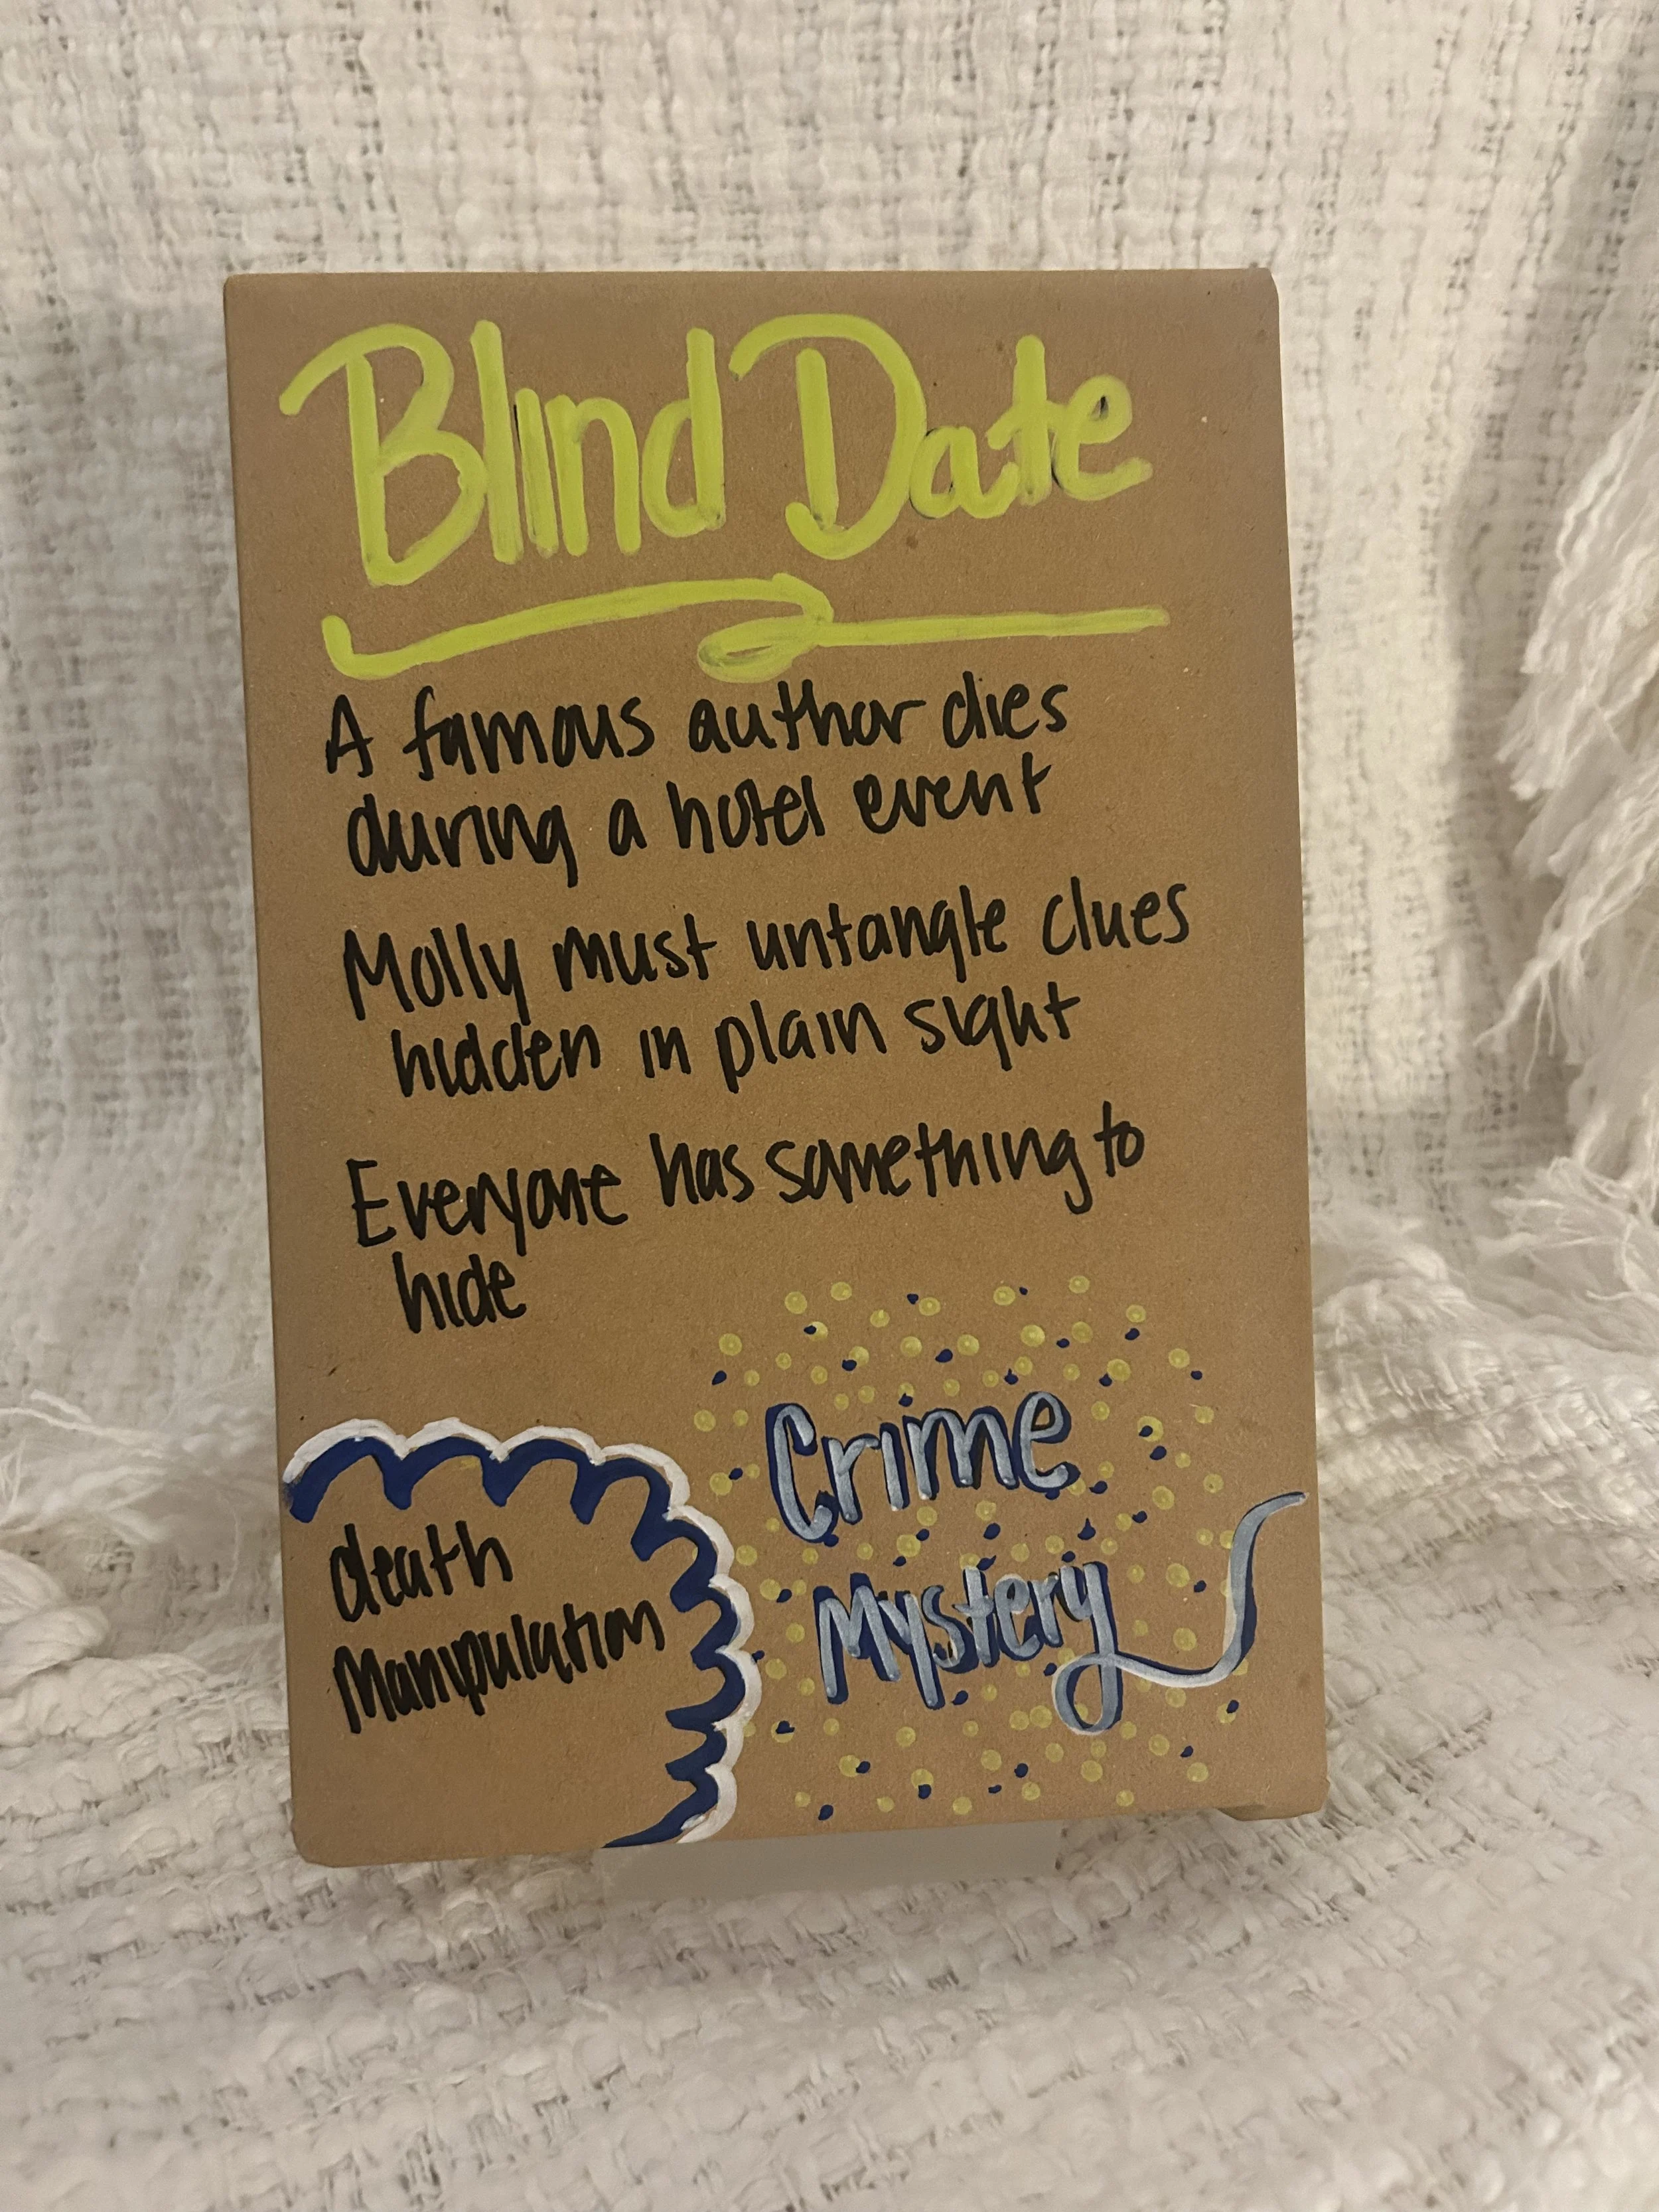 Blind Date
A famous author dies
during a hotel event
Molly must untangle clues
hidden in plain sight
Everyone has something to
hide
death
Manipulation
Crime
Mystery